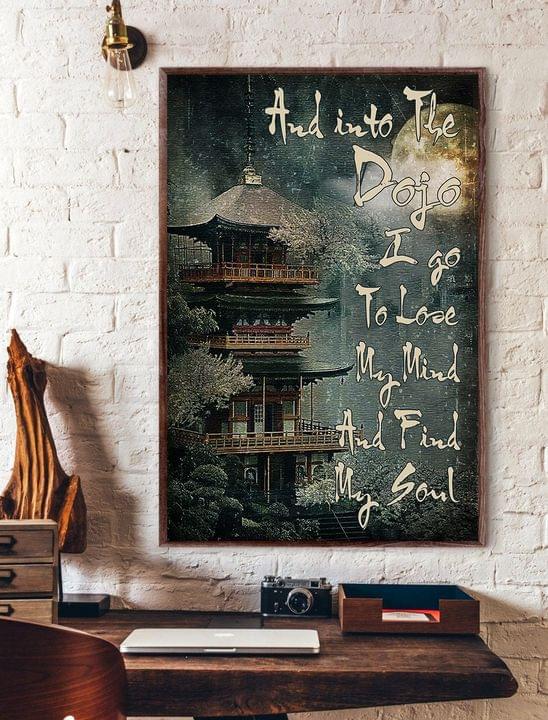 And into The
Dojo
I go
To Lose
My Mind
And Find
My Soul